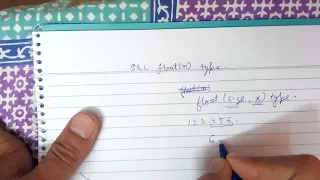 SQL float(n) type.
float(n)
float (size, x) type.
123.456.
6